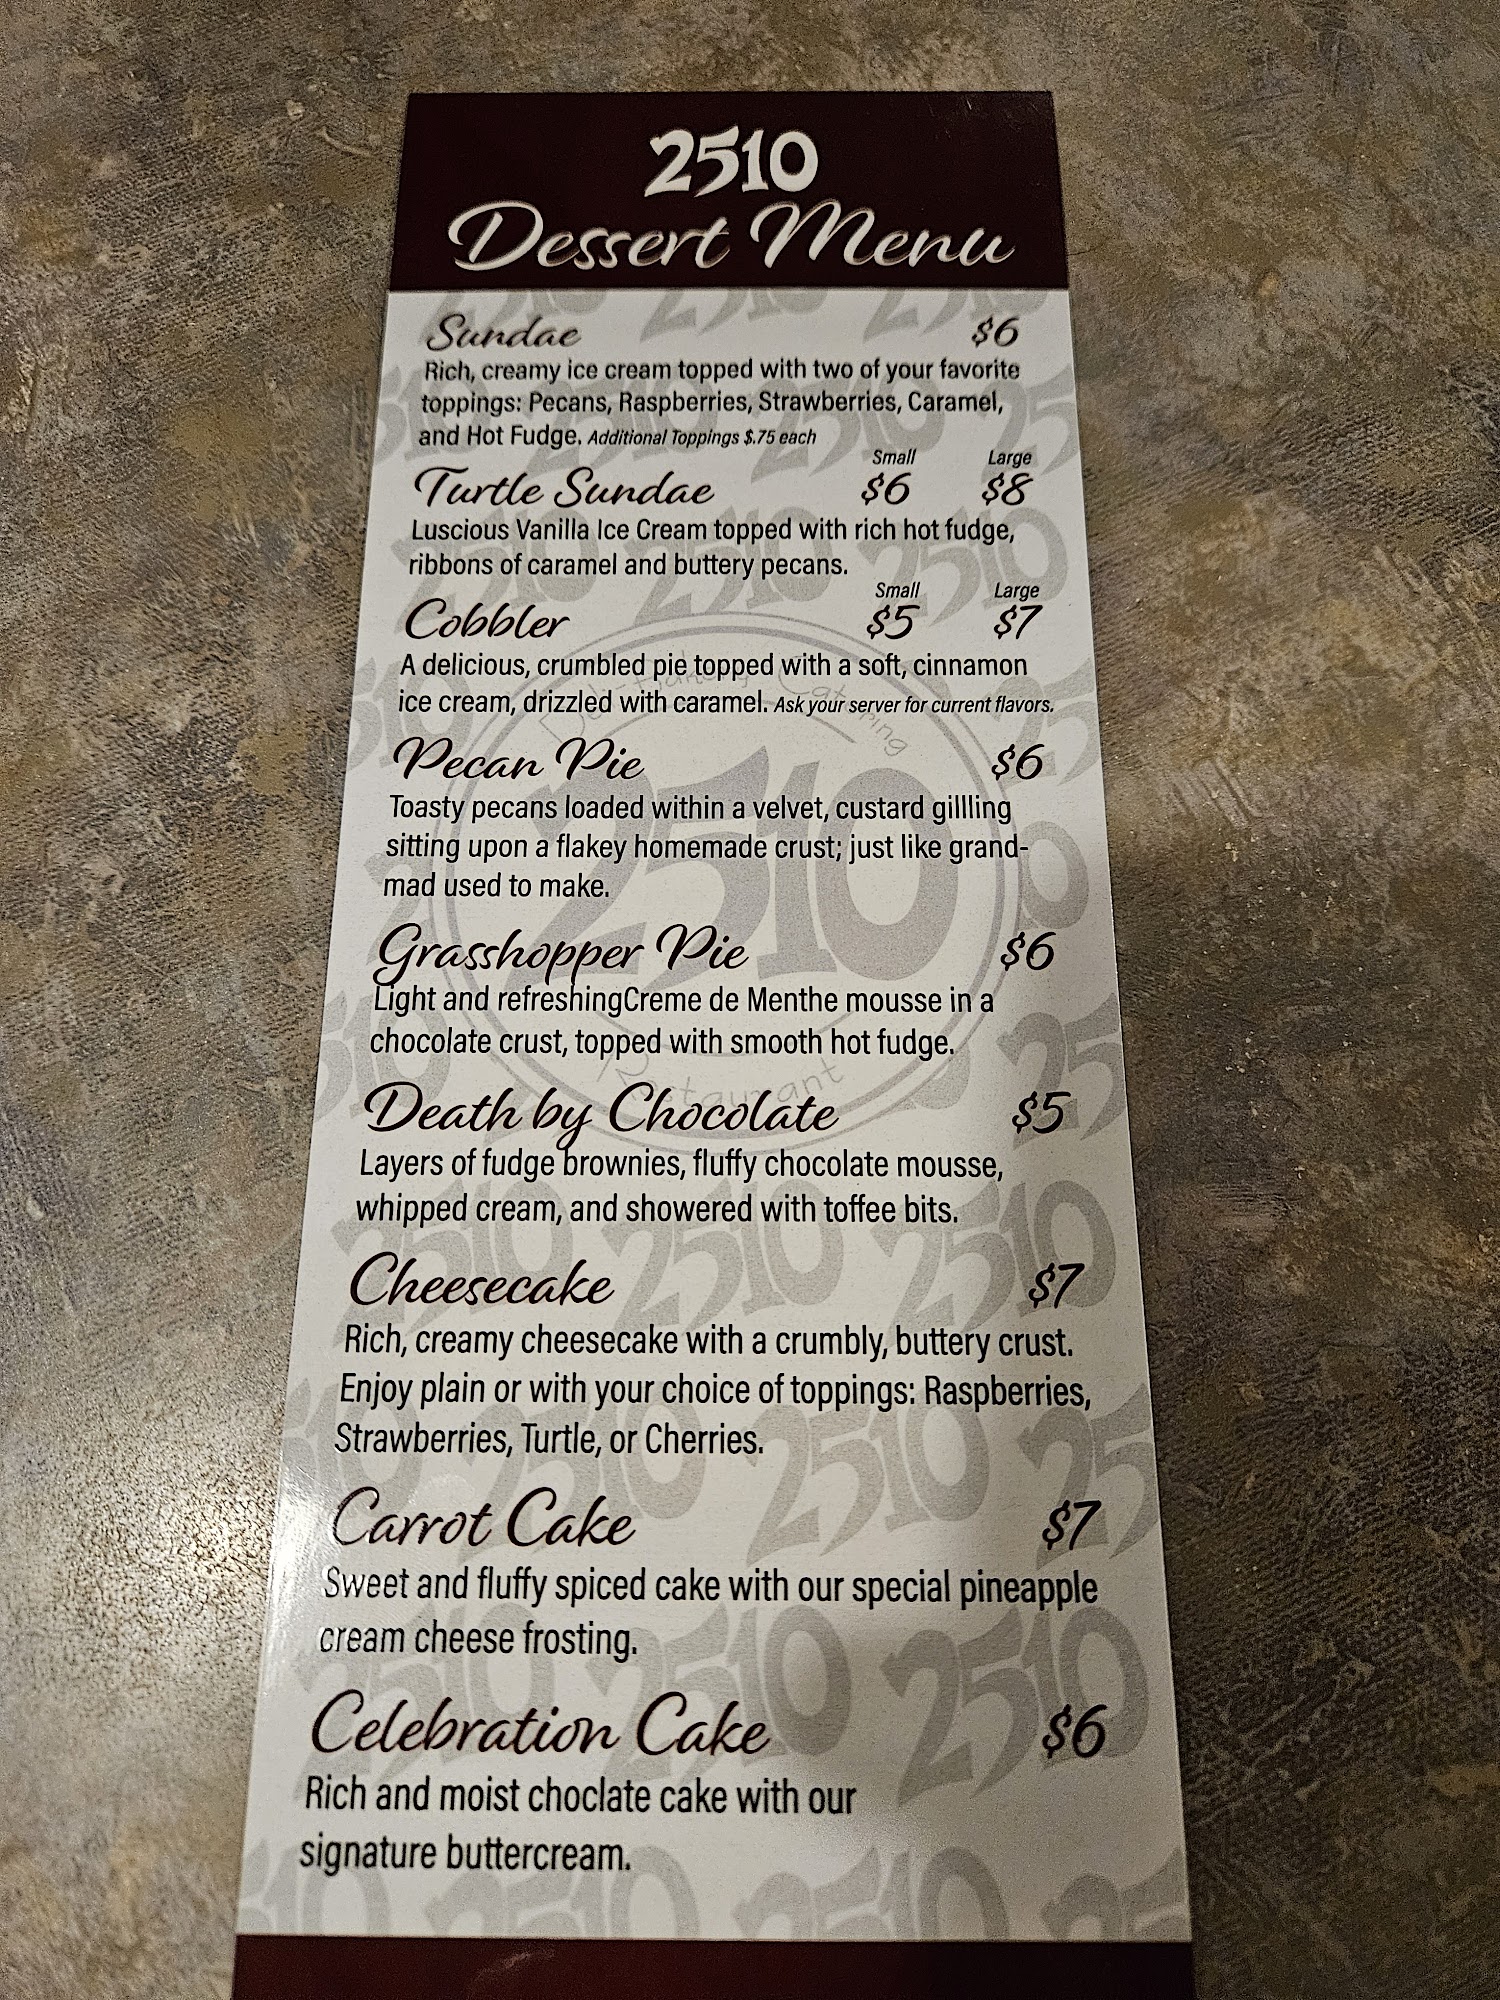 2510
Dessert Menu
Sundae $6
Rich, creamy ice cream topped with two of your favorite
toppings: Pecans, Raspberries, Strawberries, Caramel,
and Hot Fudge. Additional Toppings $.75 each
Small Large
Turtle Sundae $6 $8
Luscious Vanilla Ice Cream topped with rich hot fudge,
ribbons of caramel and buttery pecans.
Small Large
Cobbler $5 $7
A delicious, crumbled pie topped with a soft, cinnamon
ice cream, drizzled with caramel. Ask your server for current flavors.
Pecan Pie $6
Toasty pecans loaded within a velvet, custard gillling
sitting upon a flakey homemade crust; just like grand-
mad used to make.
Grasshopper Pie $6
Light and refreshingCreme de Menthe mousse in a
chocolate crust, topped with smooth hot fudge.
Death by Chocolate $5
Layers of fudge brownies, fluffy chocolate mousse,
whipped cream, and showered with toffee bits.
Cheesecake $7
Rich, creamy cheesecake with a crumbly, buttery crust.
Enjoy plain or with your choice of toppings: Raspberries,
Strawberries, Turtle, or Cherries.
Carrot Cake $7
Sweet and fluffy spiced cake with our special pineapple
cream cheese frosting.
Celebration Cake $6
Rich and moist choclate cake with our
signature buttercream.